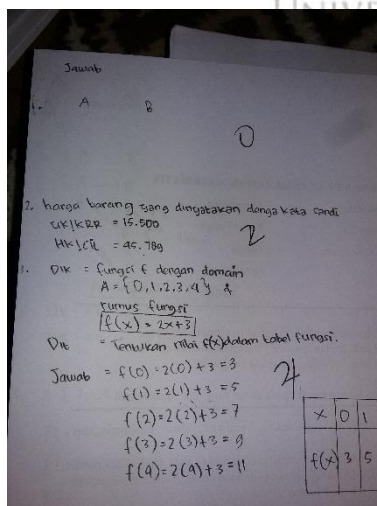 Jawab
1. A B
0
2. harga barang yang dinyatakan denga kata sandi
UK!KRR = 15.500
HK!CIL = 45.789
2
3. DIK = fungsi f dengan domain
A = {0,1,2,3,4} &
rumus fungsi
f(x) = 2x+3
Dit = Tentukan nilai f(x) dalam tabel fungsi.
Jawab = f(0) = 2(0) + 3 = 3
f(1) = 2(1) + 3 = 5
f(2) = 2(2) + 3 = 7
f(3) = 2(3) + 3 = 9
f(4) = 2(4) + 3 = 11
x 0 1
f(x) 3 5